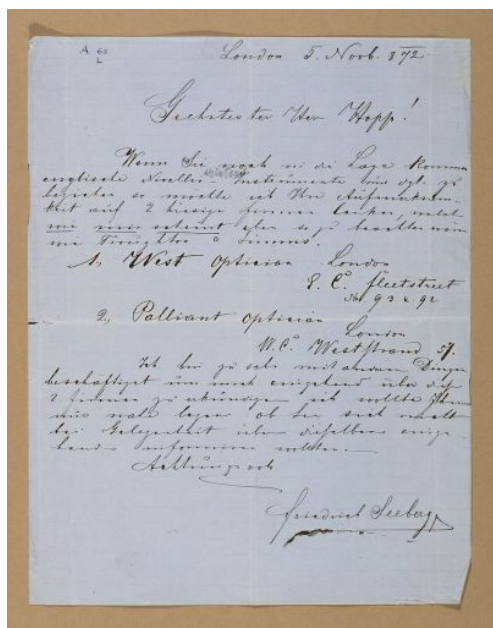 A 60
L
London 5. Novb. 872.
Geehrtester Herr Hopp!
Wenn Sie noch in die Lage kommen
englische Nivellir-Instrumente und dgl. zu
beziehen so möchte ich Ihre Aufmerksam-
keit auf 2 hiesige Firmen lenken, welche
wie mir scheint eben so zu
wie Troughton & Simms.
1, West Optician London
E. C. Fleetstreet
No 93 & 92
2, Palliant optician
London
W. C. Weststrand 51.
Ich bin zu sehr mit anderen Dingen
beschäftiget um mich eingehend über diese
2 Firmen zu erkundigen ich wollte Ihnen
nur nahe legen ob Sie sich nicht
bei Gelegenheit über dieselben einge-
hend informiren wollten.
Achtungsvoll
Friedrich Seeberg